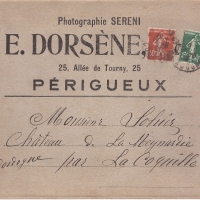 Photographie SERENI
E. DORSÈNE
25, Allée de Tourny, 25
PÉRIGUEUX
Monsieur
Château de La Meynardie
par La Coquille